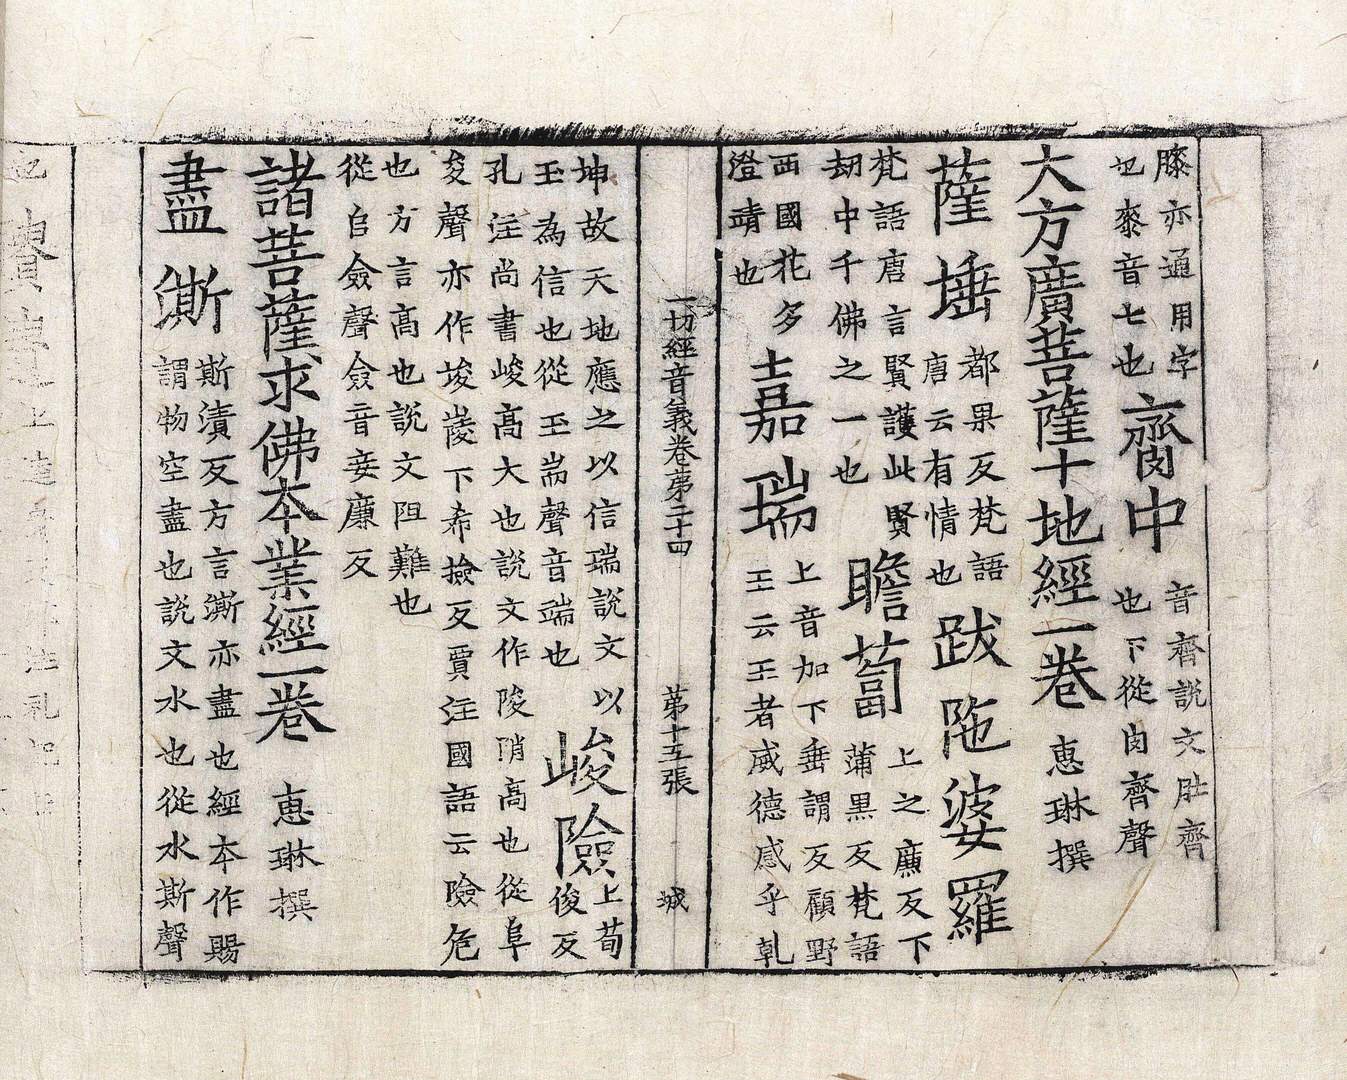 膝亦通用字
也桼音七也
臍中
音齊說文肶齊
也下從肉齊聲
大方廣菩薩十地經一卷 惠琳撰
薩埵
都果反梵語
唐云有情也
跋陁婆羅
梵語唐言賢護此賢
劫中千佛之一也
瞻蔔
上之廉反下
蒲黑反梵語
西國花多
澄靖也
嘉瑞
上音加下垂謂反顧野
王云王者威德感乎乹
一切經音義卷第二十四 第十五張 城
坤故天地應之以信瑞說文以
玉為信也從玉耑聲音端也
峻險
上荀
俊反
孔注尚書峻高大也說文作陖陗高也從阜
夋聲亦作埈崚下希撿反賈注國語云險危
也方言高也說文阻難也
從𨸏僉聲僉音妾廉反
諸菩薩求佛本業經一卷 惠琳撰
盡澌
斯漬反方言澌亦盡也經本作賜
謂物空盡也說文水也從水斯聲